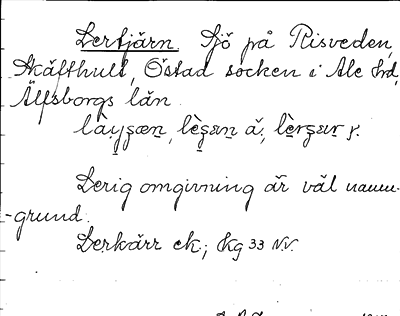 Lertjärn. Sjö på Risveden,
Skäfthult, Östad socken i Ale hd,
Älfsborgs län.
Lerig omgivning är väl namn-
-grund.
Lerkärr ek; Kg 33 NV.